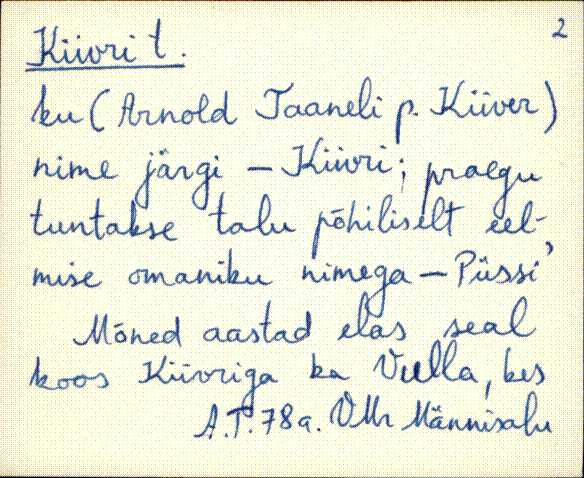 2
Kiivri t.
ku (Arnold Jaaneli p. Kiiver)
nime järgi – Kiivri; praegu
tuntakse talu põhiliselt eel-
mise omaniku nimega – Püssi'
Mõned aastad elas seal
koos Kiivriga ka Veella, kes
A.T. 78a. VMr Männisalu